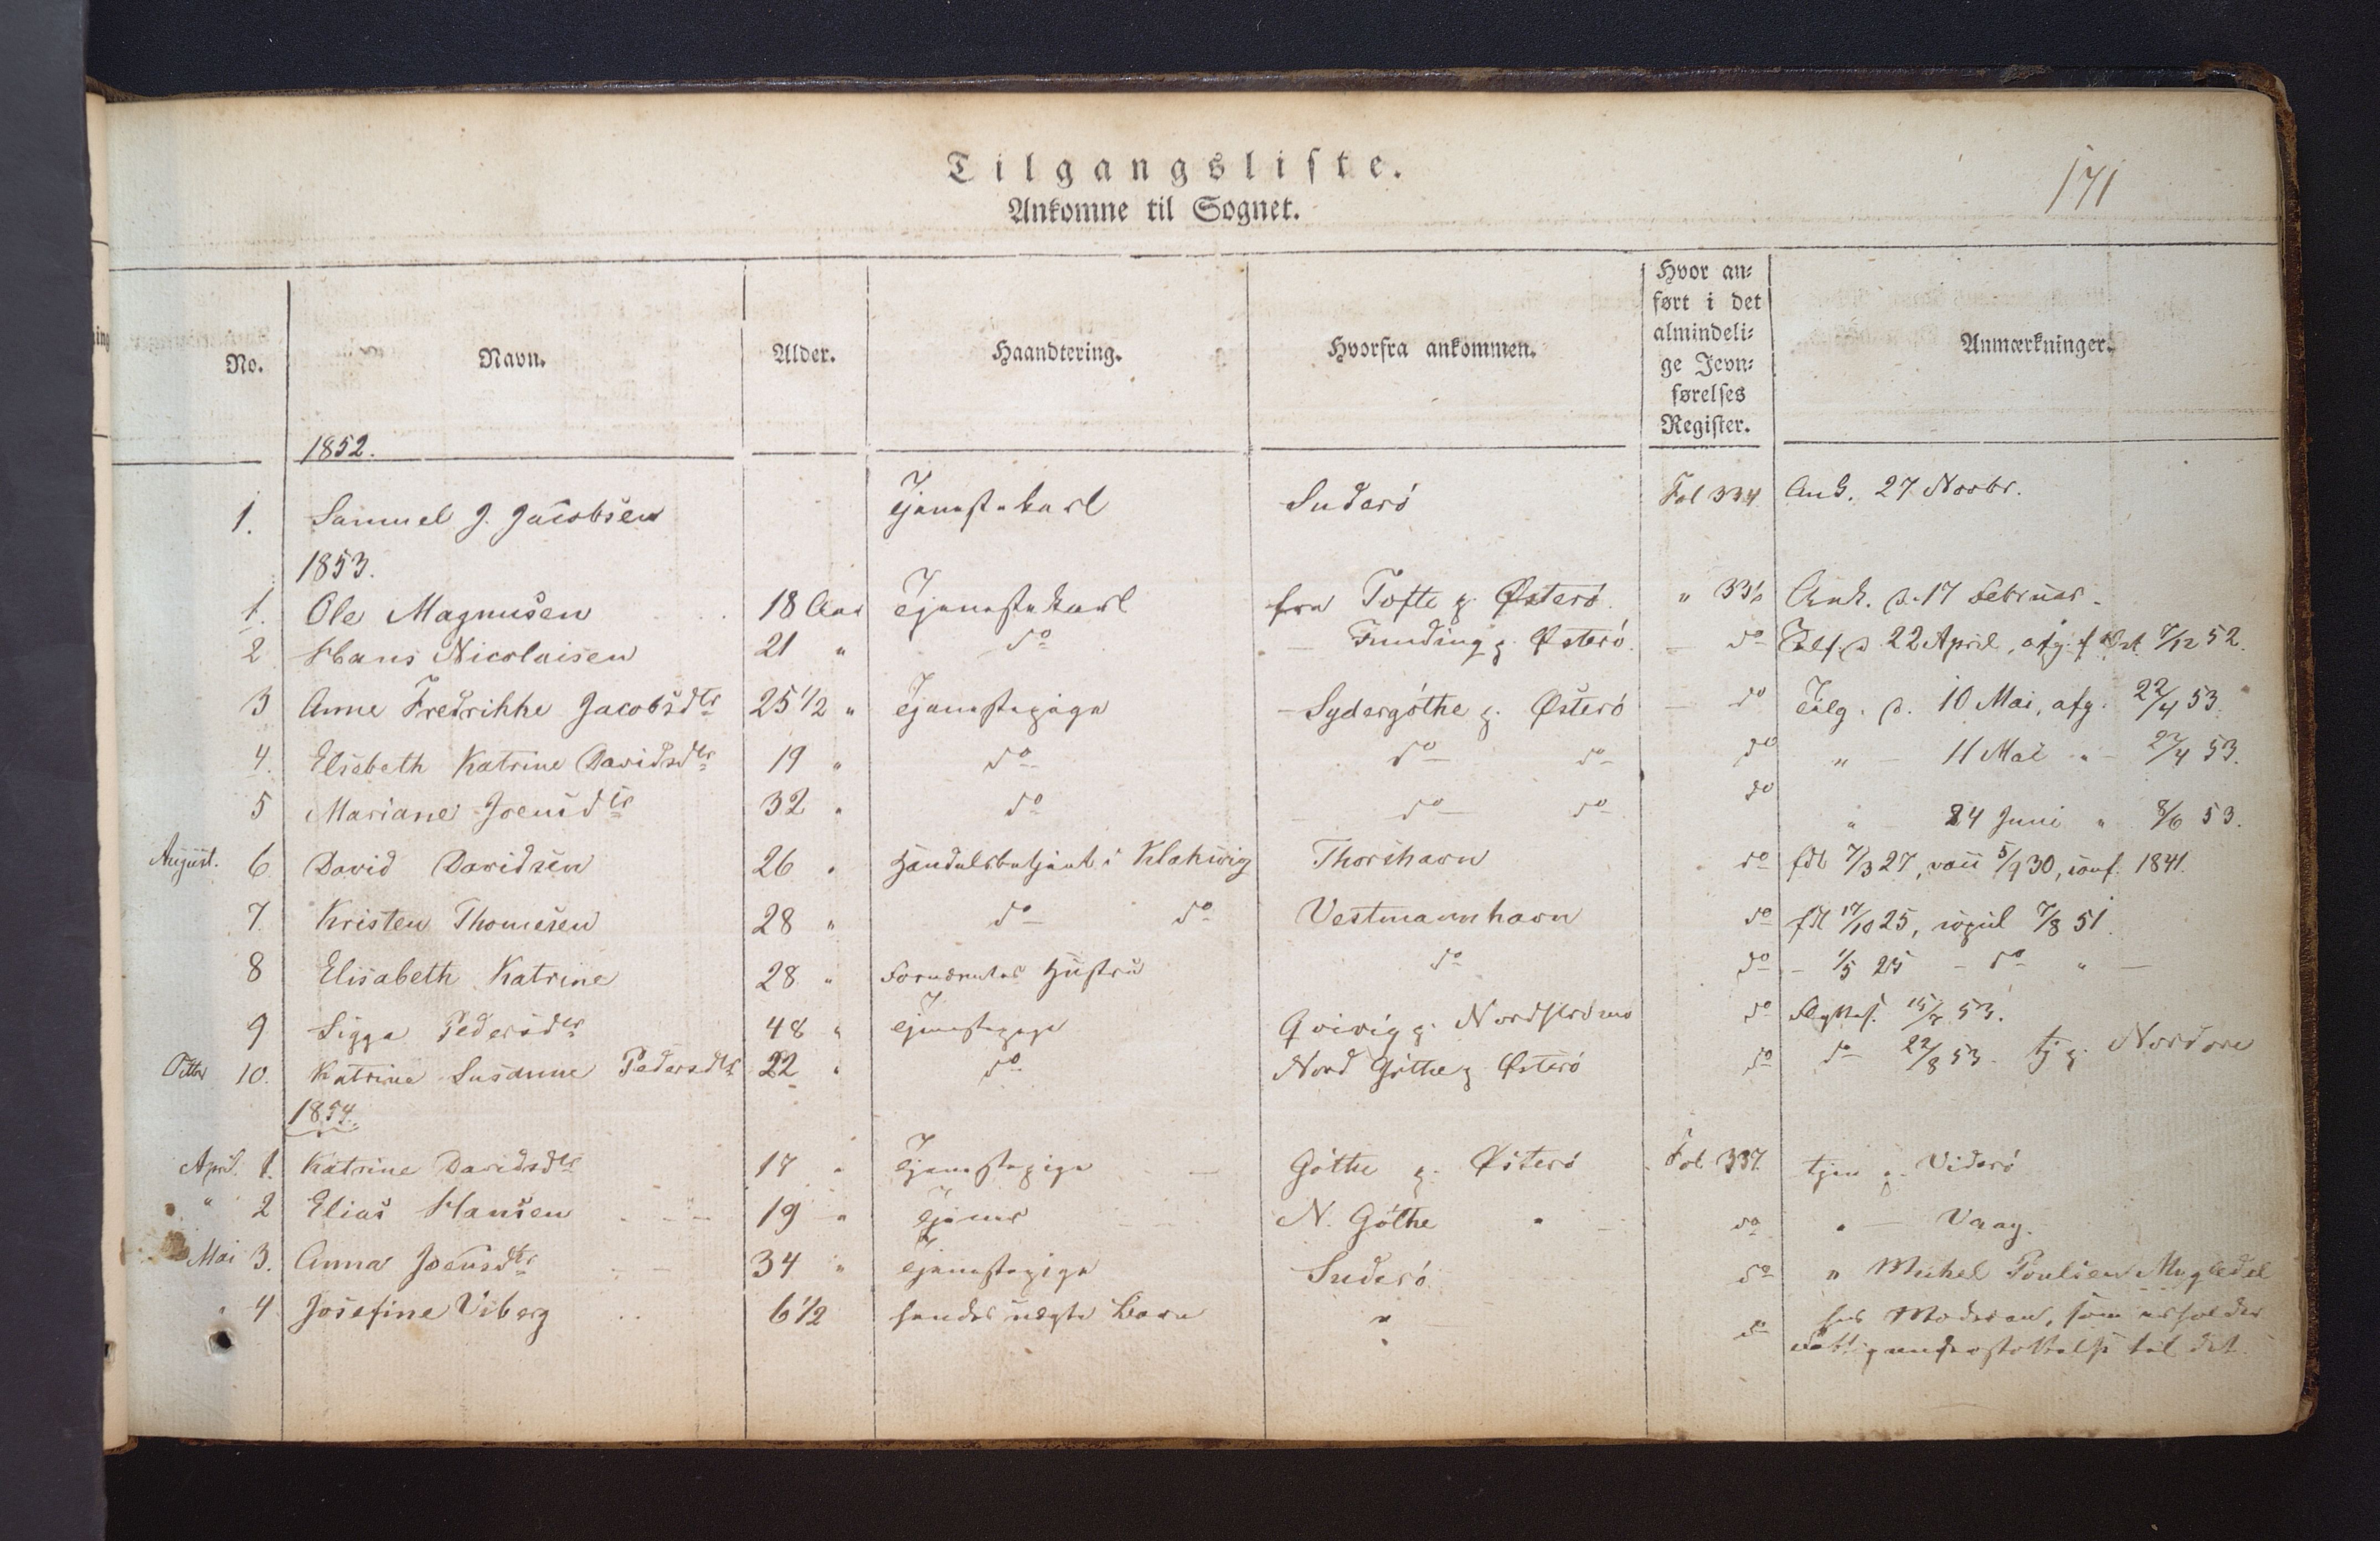 Tilgangsliste.
171
Ankomne til Sognet.
No. Navn. Alder. Haandtering. Hvorfra ankommen. Hvor an= ført i det almindeli= ge Jevn= førelses Register. Anmærkninger.
1852.
1. Samuel J. Jacobsen Tjenestekarl Suderö Fol 334 Ank. 27 Novbr.
1853.
1. Ole Magnusen 18 Aar Tjenestekarl fra Tofte p. Österö " 336 Ank. d. 17 Februar.
2 Hans Nicolaisen 21 " do — Funding p. Österö. — do 22 April, afg. f 7/12 52.
3 Anne Fredrikke Jacobsdtr 25 1/2 " Tjenestepige — Sydergöthe p. Österö — do Tilg. d. 10 Mai, afg. 22/4 53.
4. Elsebeth Katrine Davidsdtr 19 " do do do do " — 11 Mai " — 22/4 53.
5 Mariane Joensdtr 32 " do do do do " — 24 Juni " 8/6 53.
August. 6 David Davidsen 26 " Handelsbetjent i Klaksvig Thorshavn do fdt 7/3 27, vacc 5/9 30, conf. 1841.
7. Kristen Thomesen 28 " do do Vestmannhavn do fdt 17/10 25, copul 7/8 51.
8 Elisabeth Katrine 28 " Fornævntes Hustru do do — 1/5 25 — do " —
9 Sigga Pedersdtr 48 " Tjenestepige Qvivig p. Nordströmö do 15/8 53.
Octbr 10. Katrine Susanne Pedersdtr 22 " do Nord Göthe p Österö do do 22/8 53. tj p. Nordöre
1854.
April. 1. Katrine Davidsdtr 17 " Tjenestepige Göthe p. Österö Fol. 337. tjen p. Viderö
" 2 Elias Hansen 19 " Tjener N. Göthe " do " — Vaag.
Mai 3. Anna Joensdtr 34 " Tjenestepige Suderö do " Michel Poulsen Mygledal
" 4 Josefine Viberg 6 1/2 hendes uægte Barn " do hos Moderen, som erholder
Fattigunderstøttelse til det.